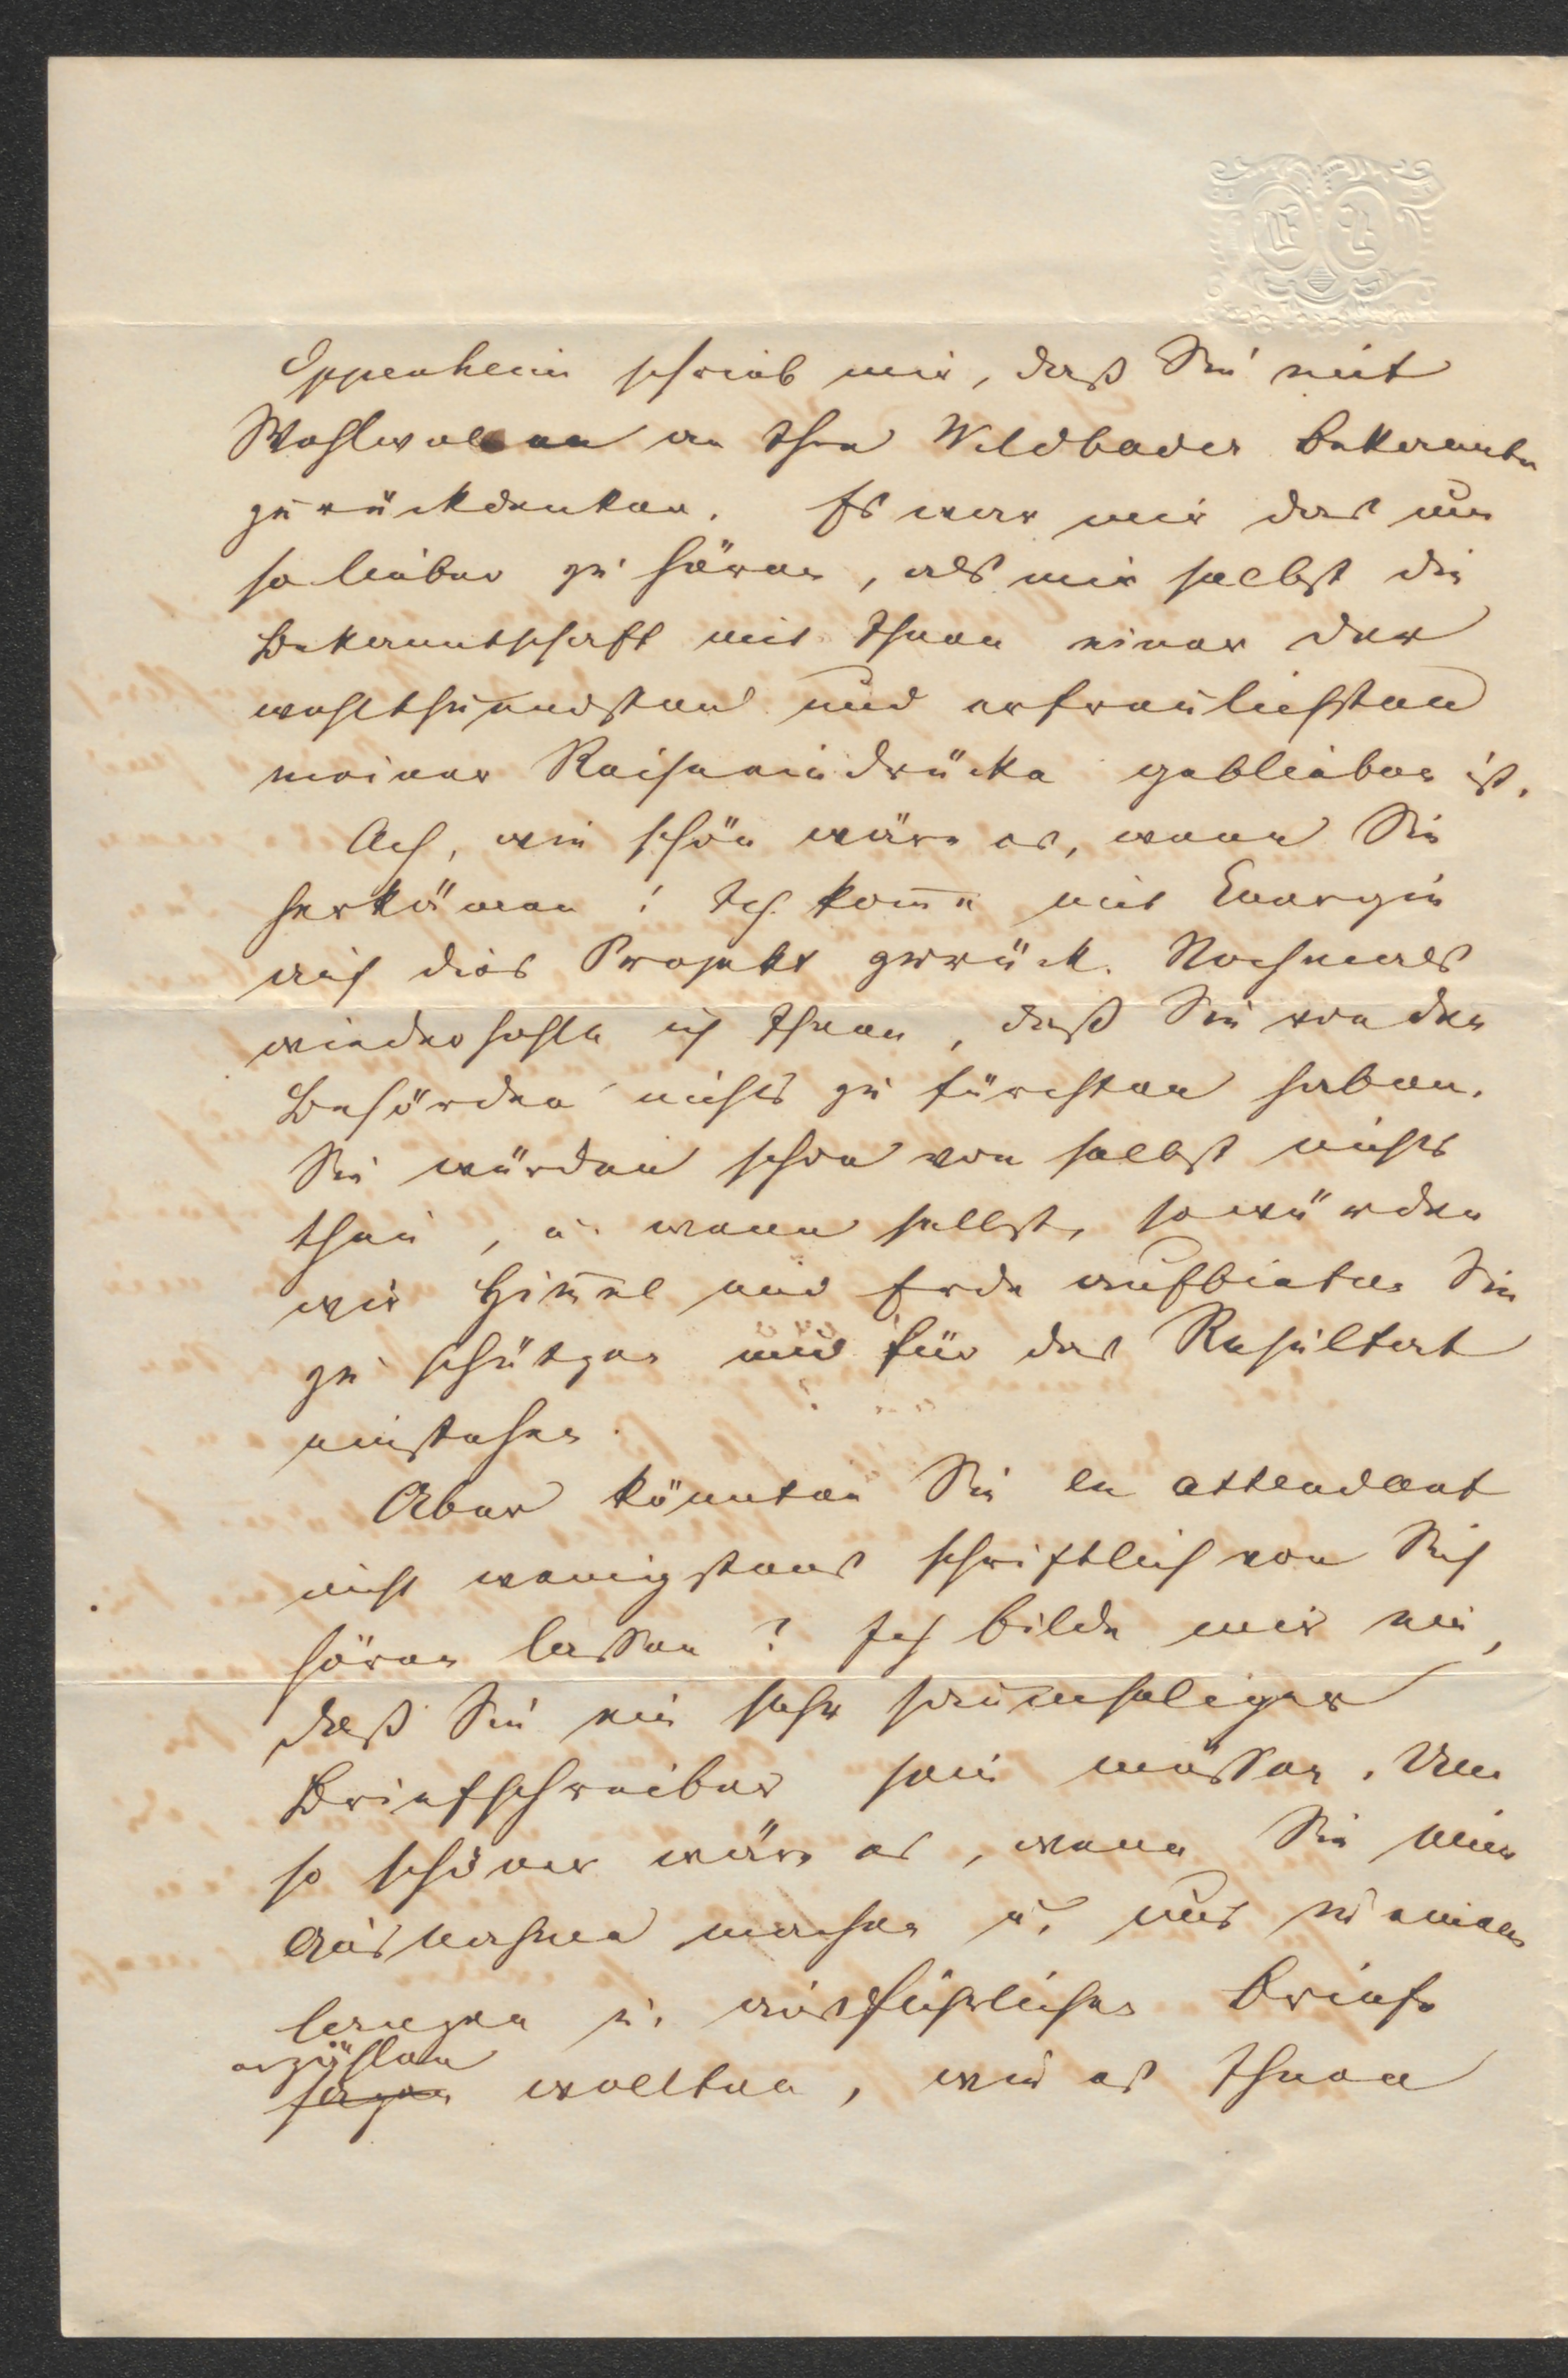 Oppenheim schrieb mir, daß Sie mit
Wohlwollen an Ihre Wildbader Bekannte
zurückdenken. Es war mir das um
so lieber zu hören, als mir selbst die
Bekanntschaft mit Ihnen einer der
wohlthuendsten und erfreulichsten
meiner Reiseeindrücke geblieben ist.
Ach, wie schön wäre es, wenn Sie
herkämen! Ich kom̅e mit Energie
auf dies Projekt zurück. Nochmals
wiederhohle ich Ihnen, daß Sie von den
Behörden nichts zu fürchten haben.
Sie würden schon von selbst nichts
thun, u. wenn selbst, so würden
wir Him̅el und Erde aufbieten Sie
zu schützen und für das Resultat
einstehen.
Aber könnten Sie en attendant
nicht wenigstens schriftlich von Sich
hören lassen? Ich bilde mir ein,
daß Sie ein sehr saumseliger
Briefschreiber sein müssen. Um
so schöner wäre es, wenn Sie eine
Ausnahme machen u. uns in einem
langen u. ausführlichen Briefe
erzählen
sagen wollten, wie es Ihnen